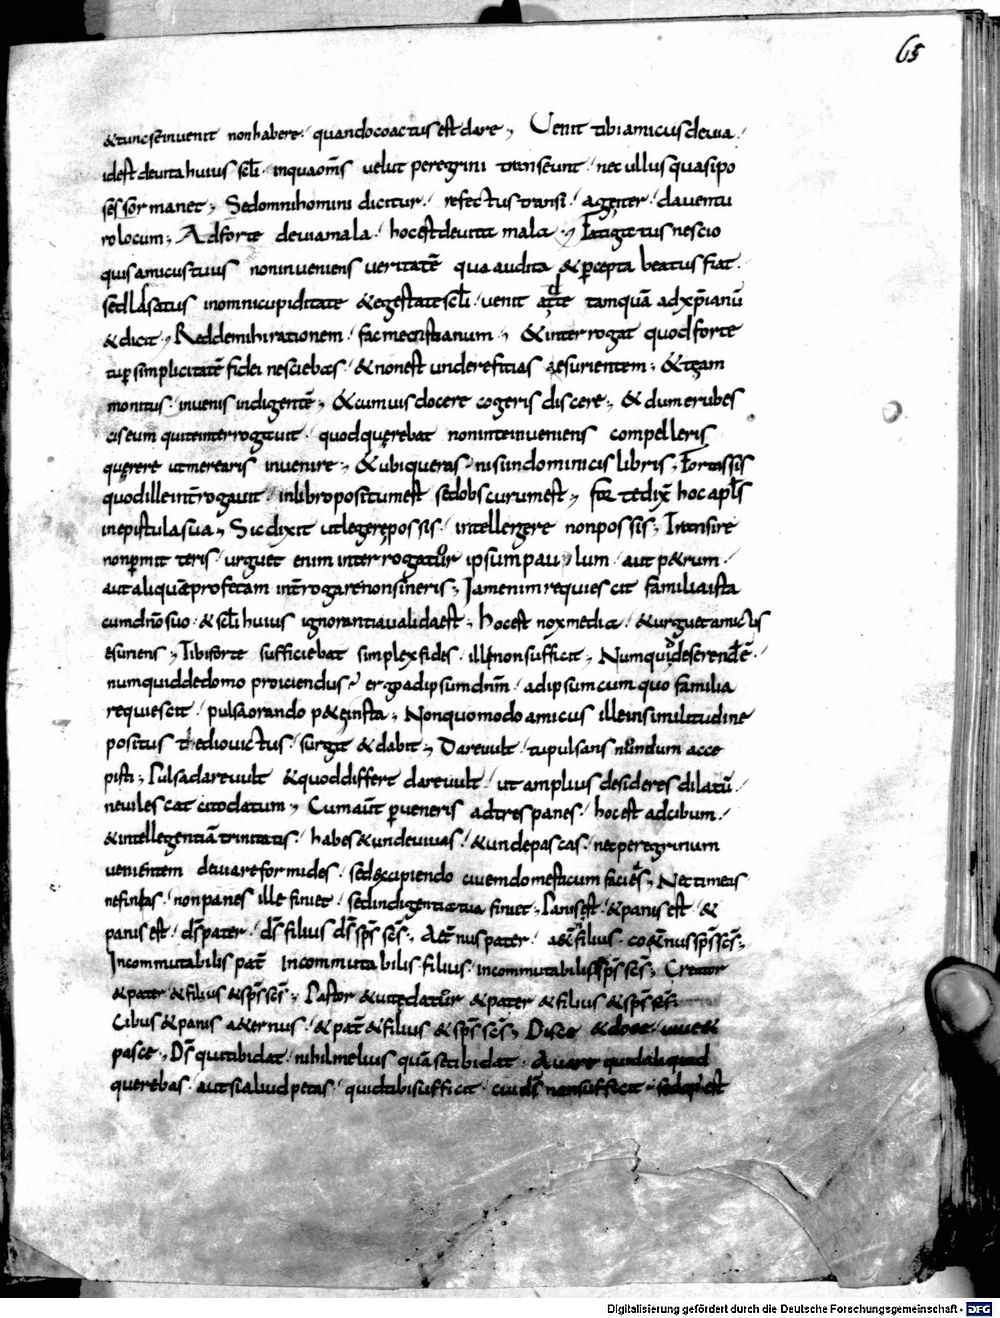 65
&tunc se inuenit non habere. quando coactus est dare; Uenit tibi amicus deuia.
id est deuita huius scli. in qua oms uelut peregrini transeunt. nec ullus quasi po
sessor manet; Sed omni homini dicitur. refectus transi. age iter. da uentu
ro locum; Ad forte de uia mala. hoc est de uita mala; Fatigatus nescio
quis amicus tuus non inueniens ueritatē qua audita & pcepta beatus fiat.
sed lassatus in omni cupiditate & egestate scli. uenit ad te tamquā ad xpianū
& dicit; Redde mihi rationem. fac me cristianum; & interrogat quod forte
tu p simplicitatē fidei nesciebas. & non est unde reficias esurientem; &
monitus. inuenis indigentē; & cum uis docere cogeris discere; & dum erubes
cis eum qui te interrogauit. quod querebat non in te inueniens compelleris
querere ut merearis inuenire; & ubi queras. nisi in dominicis libris; Fortassis
quod ille introgauit. in libro positum est sed obscurum est; for te dix hoc apls
in epistula sua; Sic dixit ut legere possis. intellegere non possis; Transire
non pmitteris. urguet enim interrogator ipsum paulum. aut p&rum.
aut aliquē profetam introgare non sineris; Iam enim requiescit familia ista
cum dno suo. & scli huius ignorantia ualida est; hoc est nox media. & urguet amicus
esuriens; Tibi forte sufficiebat simplex fides. illi non sufficit; Numquid deserend ē.
numquid de domo proiciendus? ergo ad ipsum dnm. ad ipsum cum quo familia
requiescit. pulsa orando p&e insta; Non quomodo amicus ille in similitudine
positus tedio uictus. surgit & dabit; Dare uult. tu pulsans nondum acce
pisti; Pulsa dare uult & quod differt dare uult. ut amplius desideres dilatū.
ne uilescat cito datum; Cum aut pueneris ad tres panes. hoc est ad cibum.
& intellegentiā trinitatis. habes & unde uiuas. & unde pascas. nec peregrinum
uenientem de uia reformides. sed excipiendo ciuem domesticum facies; Nec timeas
ne finias. non panes ille finiet. sed indigentia tua finiet; Panis est. & panis est. &
panis est. ds pater. ds filius ds sps scs; Aet nus pater. co filius. co nus sps scs;
Incommutabilis pat incommutabilis filius. incommutabilis sps scs; Creator
& pater & filius & sps scs; Pastor & uite dator & pater & filius & sps scs
Cibus & panis a&ernus. & pat & filius & sps scs; Disce & doce. uiue &
pasce; Ds qui tibi dat. nihil melius quā se tibi dat. Auare quid aliquid
querebas. aut si aliud petas. quid tibi sufficit. cui ds non sufficit. sed est
Digitalisierung gefördert durch die Deutsche Forschungsgemeinschaft - DFG